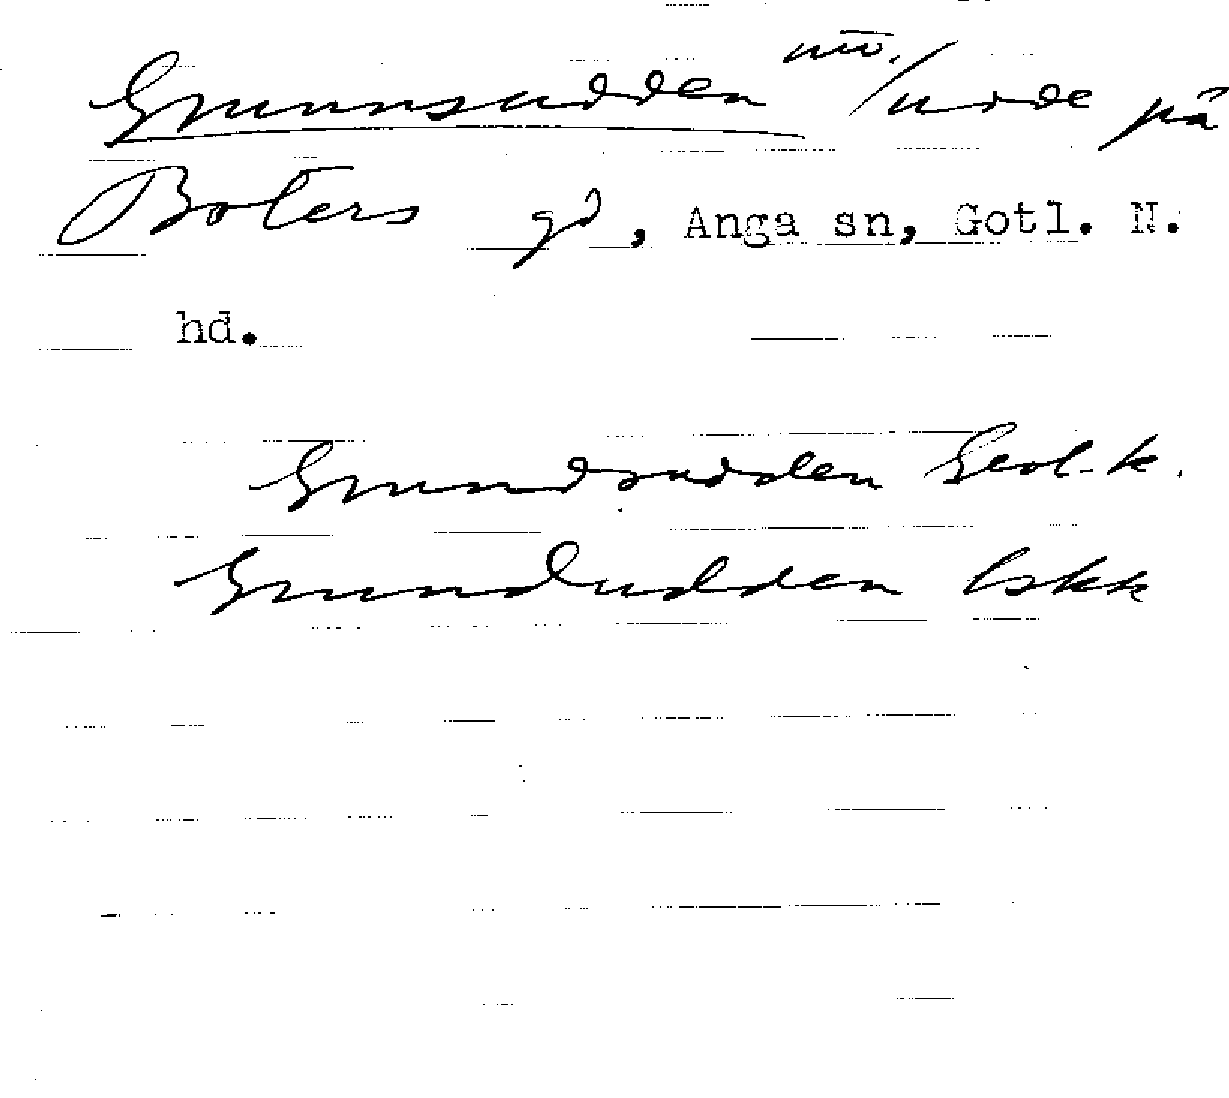 Grunnsudden nö. / udde på
Boters gd, Anga sn, Gotl. N.
hd.
Grundsudden Geol. k.
Grundudden Eskk